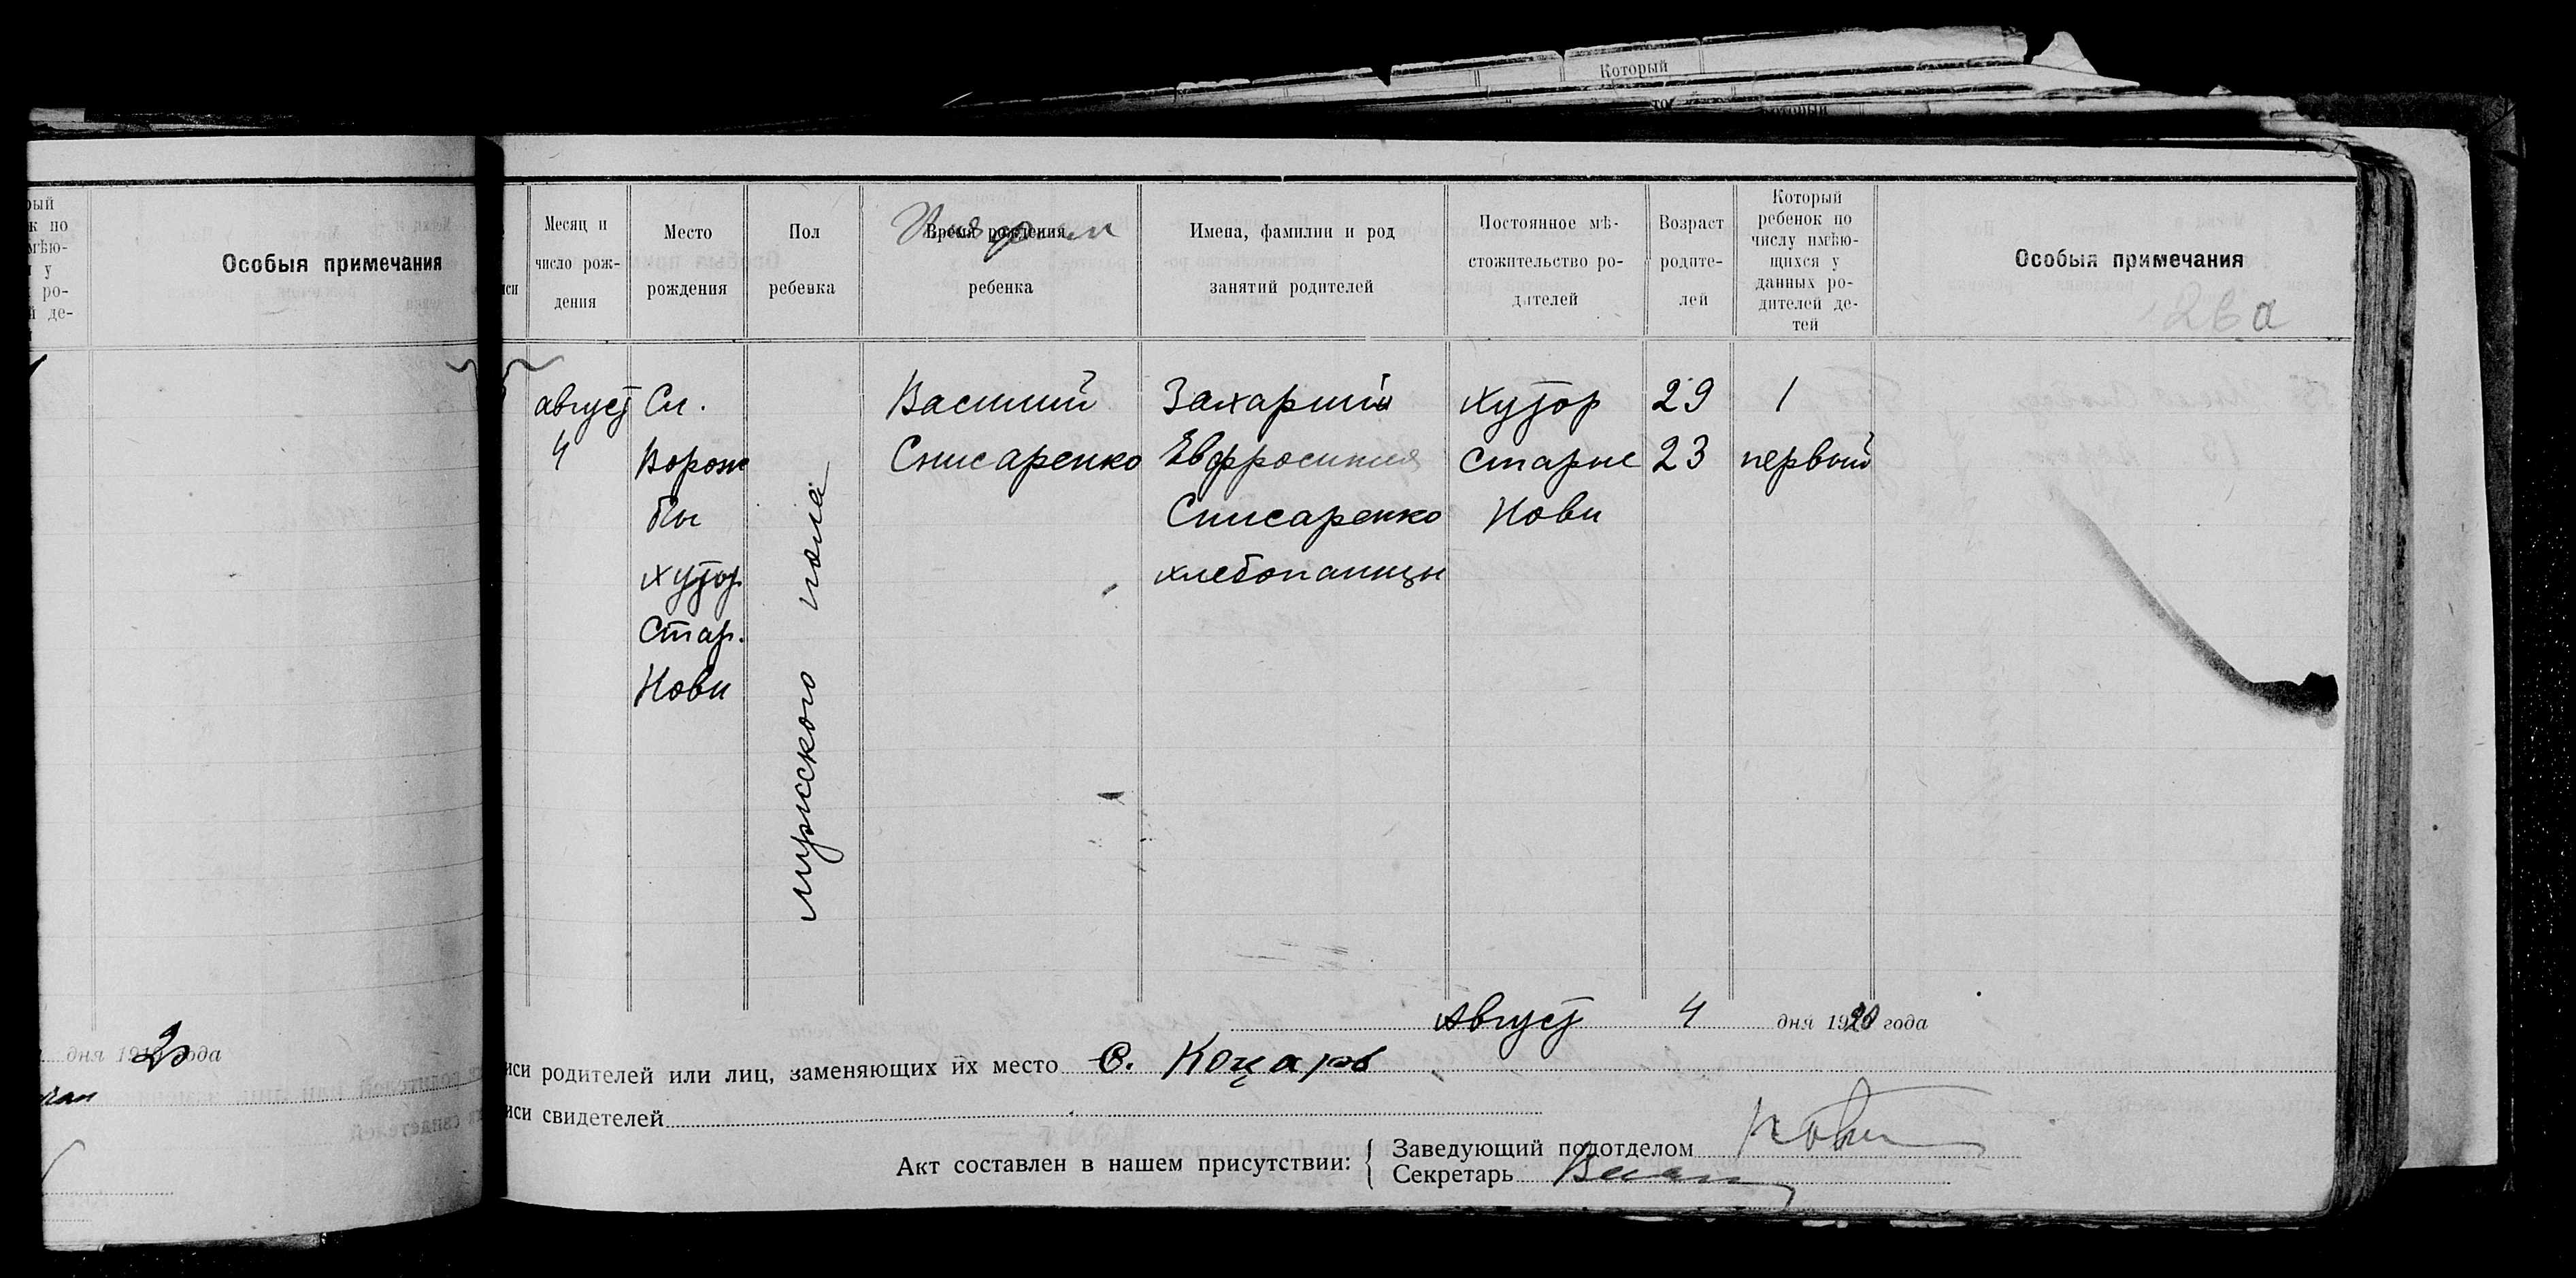 Который
Который
рый
к по
мѣю-
у
ро-
й де-
Особыя примечания
дня 19 20 года
иси
Месяц и
число рож-
дения
Место
рождения
Пол
ребенка
Время рождения
ребенка
Имена, фамилии и род
занятий родителей
Постоянное мѣ-
стожительство ро-
дителей
Возраст
родите-
лей
Который
ребенок по
числу имѣю-
щихся у
данных ро-
дителей де-
тей
Особыя примечания
26а
август
4
Сл.
Ворож
бы
хутор
Стар.
Нови
мужского пола
Василий
Снисаренко
Захарий
Евфросиния
Снисаренко
хлебопашцы
хутор
старые
Нови
29
23
1
первый
Август 4 дня 1920 года
иси родителей или лиц, заменяющих их место С. Коцарь
иси свидетелей
Акт составлен в нашем присутствии:
Заведующий подотделом
Секретарь